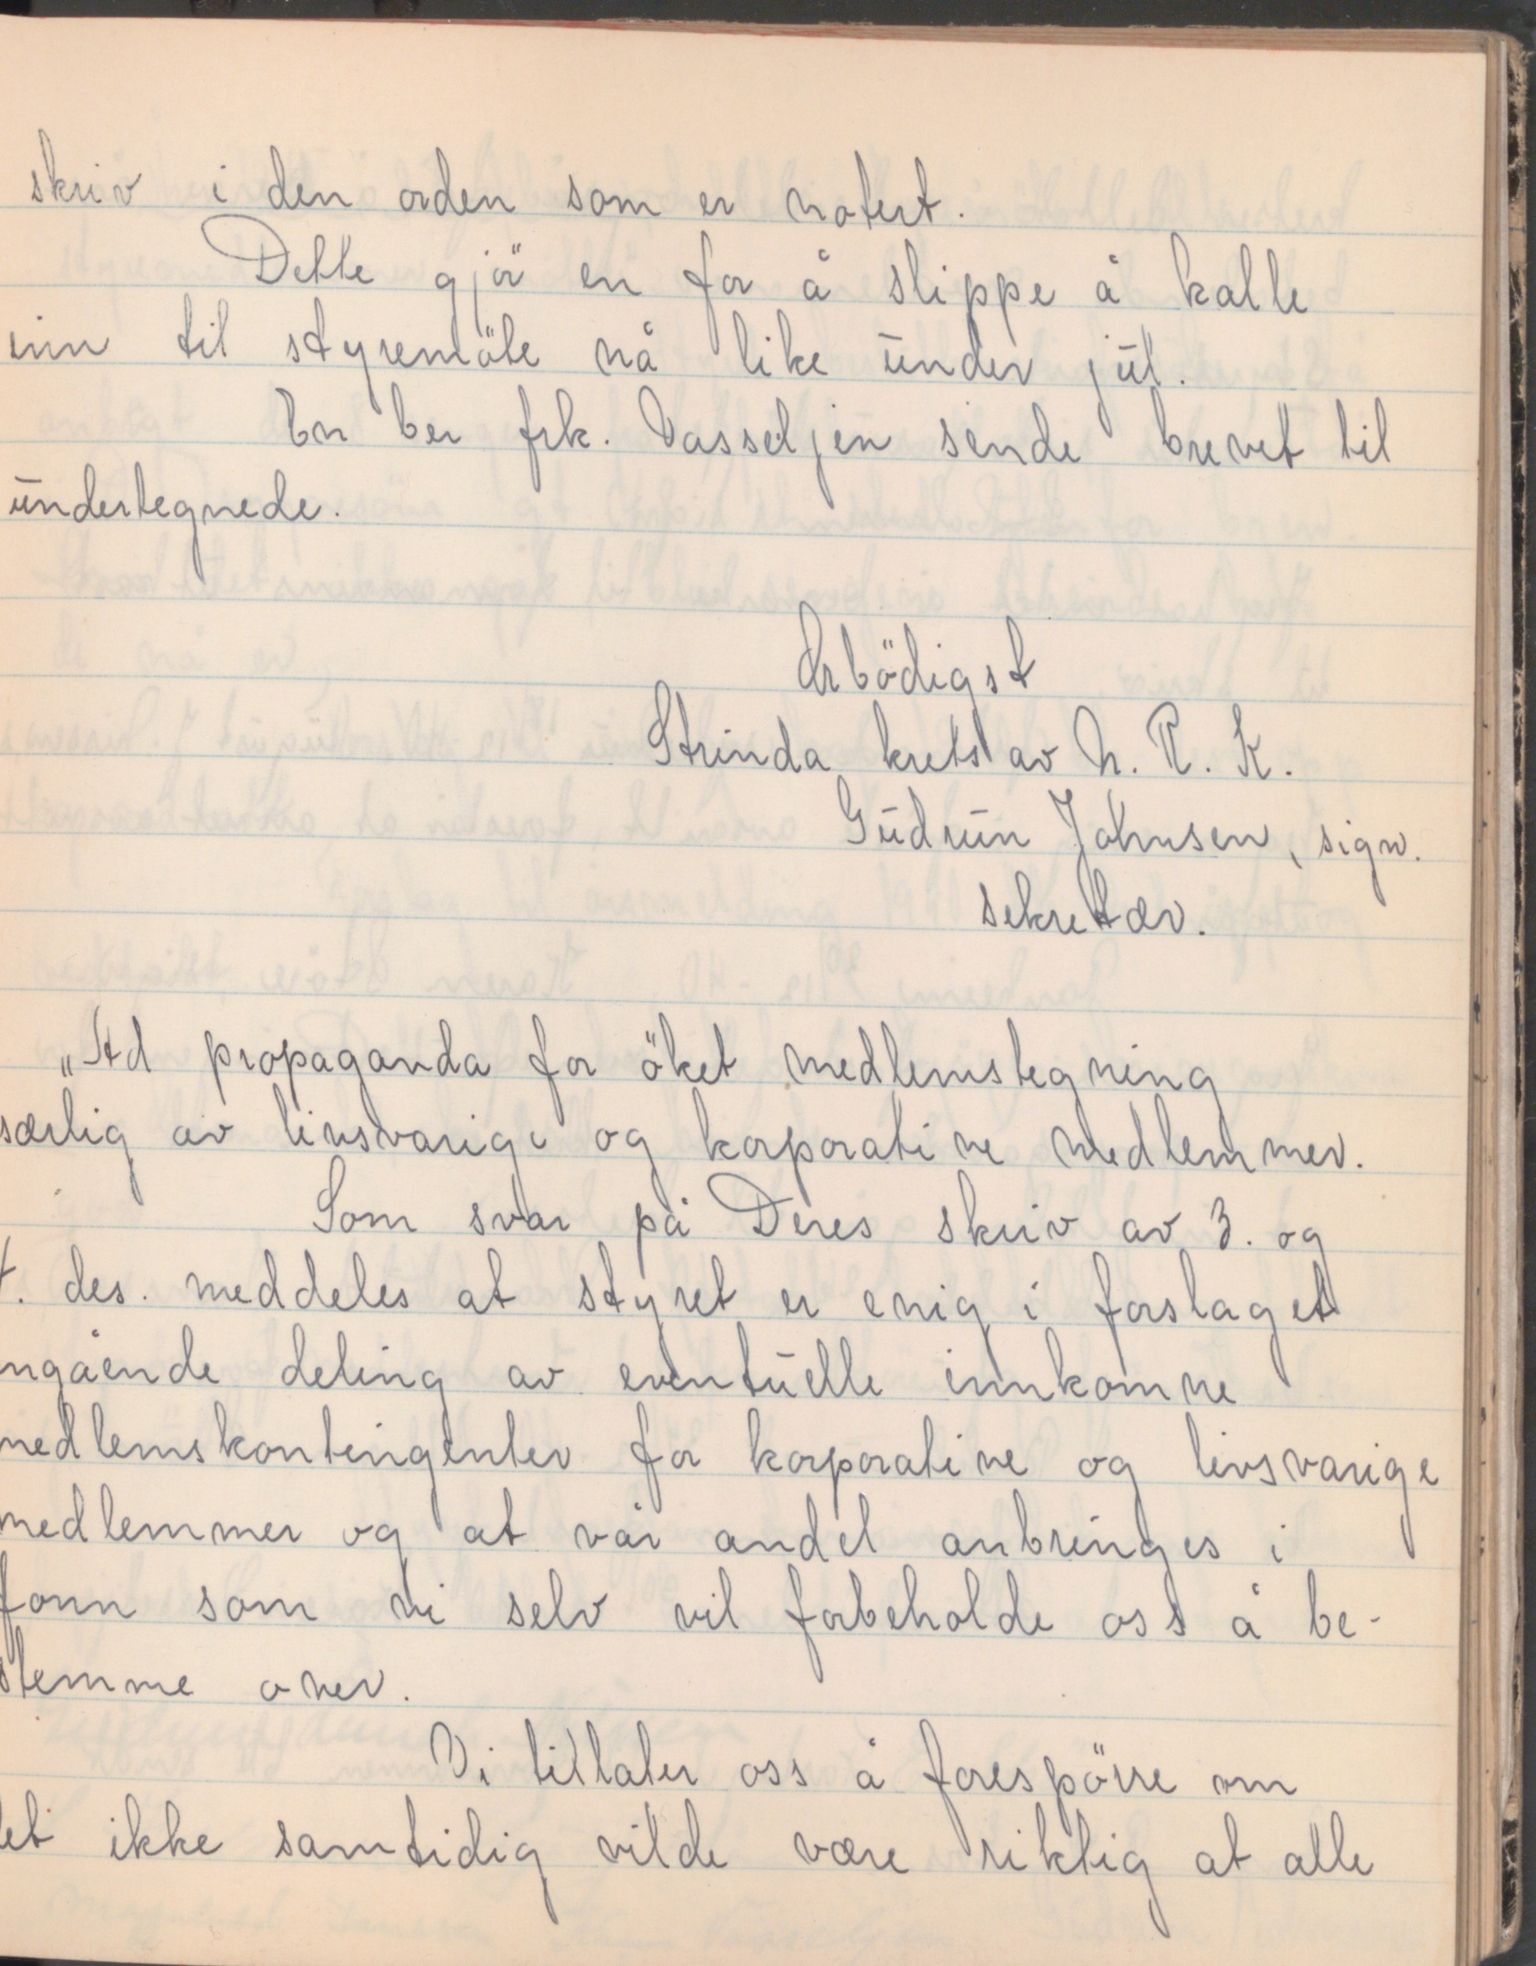 skriv i den orden som er notert.
Dette gjör en for å slippe å kalle
inn til styremöte nå like under jul.
En ber frk. Vasseljen sende brevet til
undertegnede.
Ærbödigst
Strinda krets av N. R. K.
Gudrun Johnsen, sign.
sekretær.
„Ad propaganda for öket medlemstegning
særlig av livsvarige og korporative medlemmer.
Som svar på Deres skriv av 3. og
des. meddeles at styret er enig i forslaget
ngående deling av eventuelle innkomne
medlemskontingenter for korporative og livsvarige
medlemmer og at vår andel anbringes i
fonn som vi selv vil forbeholde oss å be-
stemme over.
Vi tillater oss å forespörre om
et ikke samtidig vilde være riktig at alle